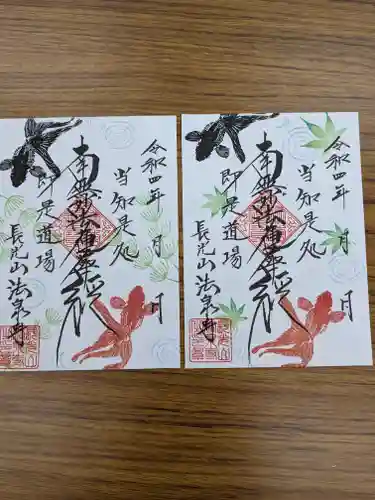 令和四年 月 月
当知是処
南無妙法蓮華経
即是道場
長光山 法泉寺
令和四年 月 月
当知是処
南無妙法蓮華経
即是道場
長光山 法泉寺